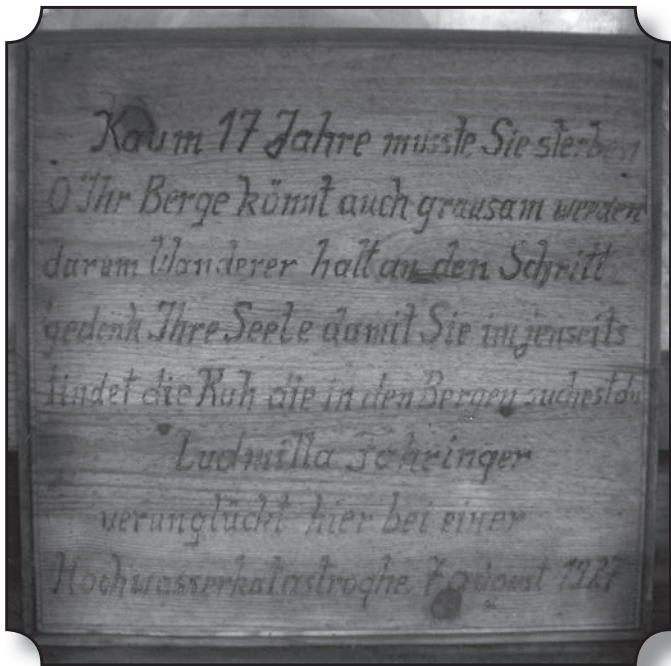 Kaum 17 Jahre musste Sie sterben
O Ihr Berge könnt auch grausam werden
darum Wanderer halt an den Schritt
gedenk Ihre Seele damit Sie im jenseits
findet die Ruh die in den Bergen suchest du
Ludmilla
verunglückt hier bei einer
Hochwasserkatastrophe 7 august 1927